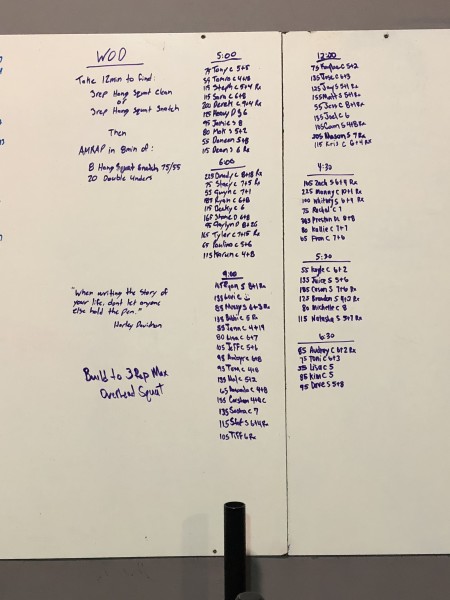 WOD
Take 12min to find:
3rep Hang Squat Clean
or
3rep Hang Squat Snatch
Then
AMRAP in 8min of:
8 Hang Squat Snatch, 75/55
20 Double Unders
"When writing the story of
your life, don't let anyone
else hold the pen."
Harley Davidson
Build to 3 Rep Max
Overhead Squat
5:00
75 Tony C 5+5
55 Tonia C 4+8
115 Steph C 5+4 Rx
115 Sara C 6+8
200 Derek C 9+4 Rx
95 Jamie S 8
80 Matt S 2
55 Doneen S+8
115 Dean S 6 Rx
6:00
225 C 8+18 Rx
75 Stacy C 7+5 Rx
55 C 7+1
185 Ryan C 6+8
115 Becky C 6
165 Steve D 6+8
165 Tyler C 7+15 Rx
65 Paulina C 5+6
115 Karien C 4+8
9:00
Ryan S 8+1 Rx
135 C
85 Missy S 6+3 Rx
135 C 5 Rx
55 Jenn C 4+19
80 Lisa C 6+7
105 Jeff C 5+6
95 C 6+8
95 Tom C 4+8
135 Hal C 5+2
65 C 4+8
155 C 4+8 C
135 Sasha C 7
115 S 6+14 Rx
105 Tiff 6 Rx
12:00
75 C 5+2
135 Jose C 6+3
125 Jay S 5+11 Rx
155 Matt S 5+1 Rx
55 Jess C 8+1 Rx
155 Joel C 6
105 S 4+8 Rx
205 Mason S 7 Rx
115 Kris C 6+4 Rx
4:30
105 Zach S 6+9 Rx
225 Manny C 10+1 Rx
100 Whitney S 6+9 Rx
75 Rachel C 7
185 Preston D 8+8
80 Kallie C 7+7
65 Fran C 7+6
5:30
55 Kayle C 6+2
135 Juice S 5+6
185 Cason S 7+6 Rx
125 Brandon S 9+2 Rx
80 Michelle C 8
115 Natasha S 5+7 Rx
6:30
85 Audrey C 6+2 Rx
75 Toni C 6+3
35 Lisa C 5
85 Kim C 5
95 Dave S 5+8